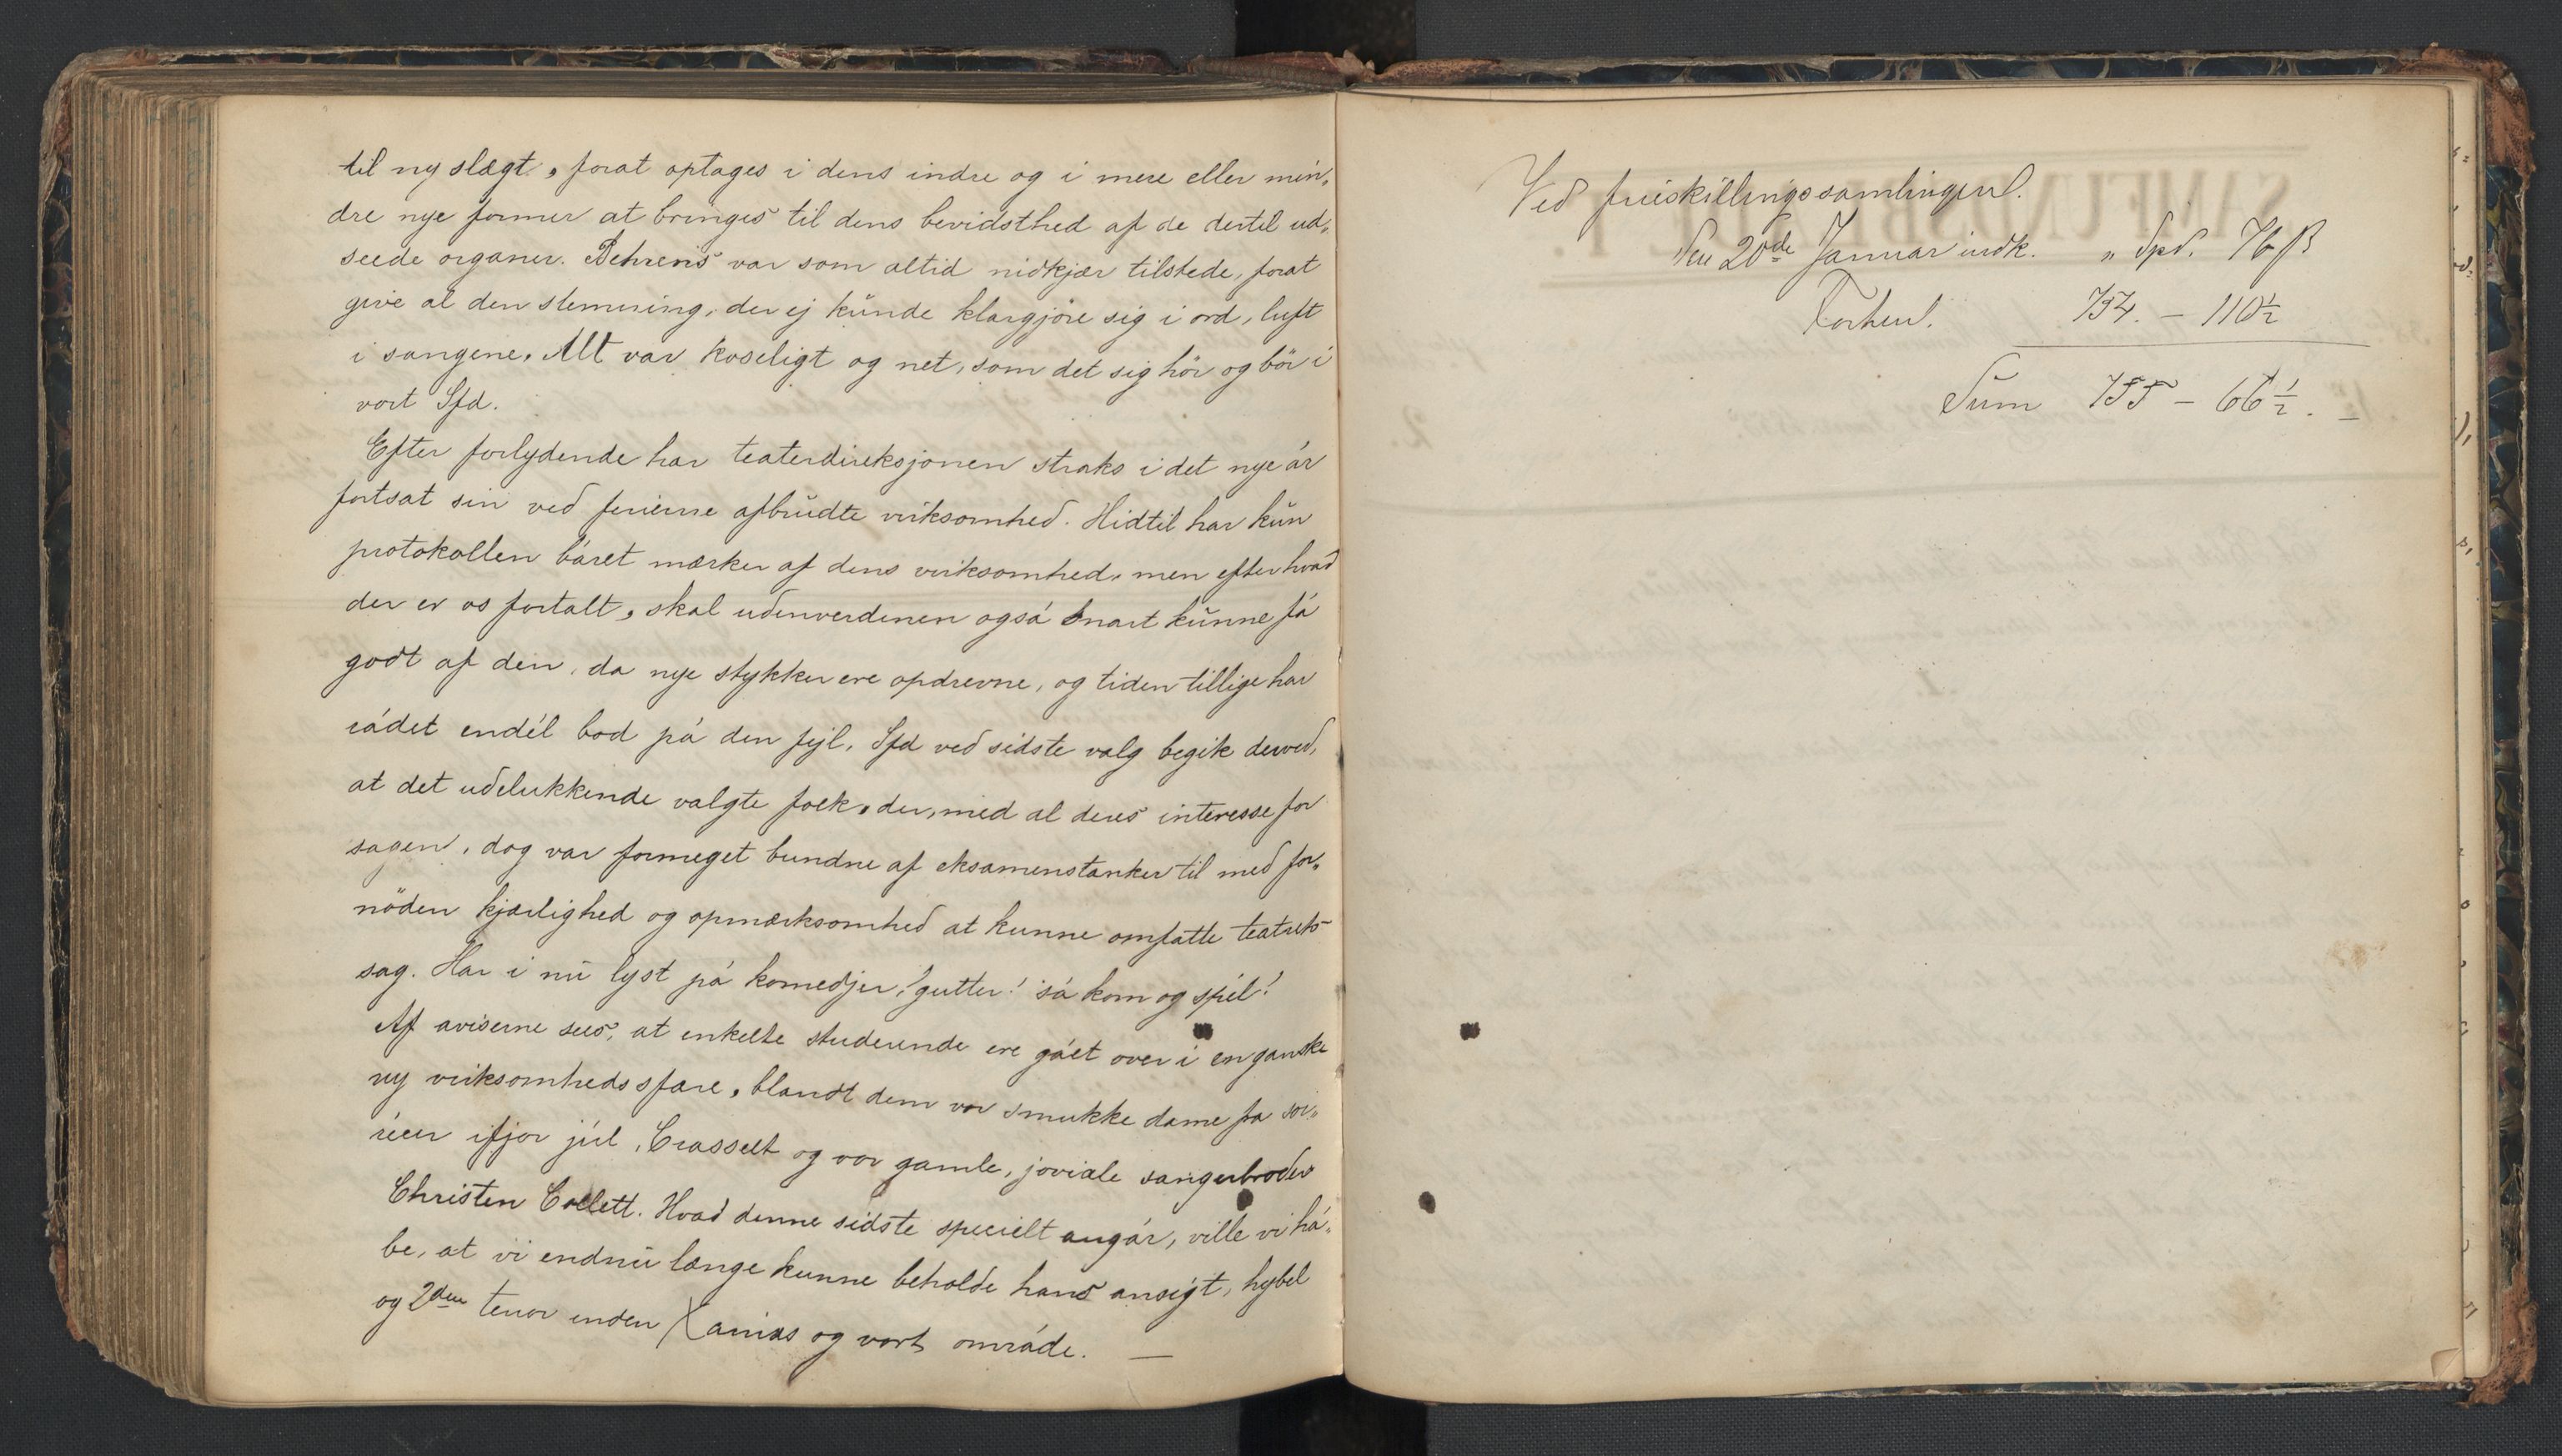 til ny slægt, forat optages i dens indre og i mere eller min„
dre nye former at bringes til dens bevidsthed af de dertil ud„
seede organer. Behrens var som altid nidkjær tilstede, forat
give al den stemning, der ej kunde klargjöre sig i ord, luft
i sangene. Alt var koseligt og net, som det sig hör og bör i
vort Sfd.
Efter forlydende har teaterdireksjonen straks i det nye år
fortsat sin ved ferierne afbrudte virksomhed. Hidtil har kun
protokollen båret mærker af dens virksomhed, men efter hvad
der er os fortalt, skal udenverdenen også snart kunne få
godt af den, da nye stykker ere opdrevne, og tiden tillige har
rådet endél bod på den fejl, Sfd ved sidste valg begik derved,
at det udelukkende valgte folk, der, med al deres interesse for
sagen, dog var formeget bundne af eksamenstanker til med for„
nöden kjærlighed og opmærksomhed at kunne omfatte teatrets
sag. Har i nu lyst på komedjer, gutter! så kom og spil!
Af aviserne sees, at enkelte studerende ere gået over i en ganske
ny virksomheds sfære, blandt dem vor smukke dame fra soi„
réen ifjor júl, Crasselt og vor gamle, joviale sangerbroder
Christen Collett. Hvad denne sidste specielt angår, ville vi hå„
be, at vi endnu længe kunne beholde hans ansigt, hybel
og 2den tenor inden Xanias og vort område. —
Ved friskillingssamlingen.
Den 20de Januar indk. „ Spd. 76 β
Forhen. 754. – 110½
Sum 755 – 66½. –